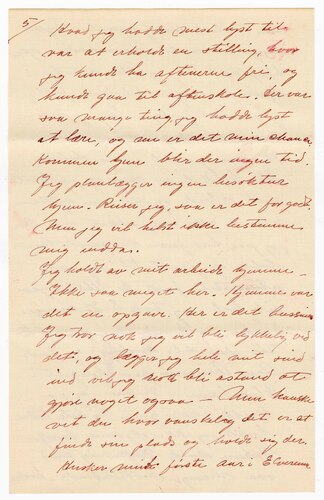 5/
Hvad jeg hadde mest lyst til
var at erholde en stilling, hvor
jeg kunde ha aftenerne fri, og
kunde gaa til aftenskole. Der var
saa mange ting jeg hadde lyst
at lære, og nu er det min chance.
Kommen hjem blir der ingen tid.
Jeg planlægger ingen besøktur
hjem. Reiser jeg, saa er det for godt.
Men jeg vil helst ikke bestemme
mig endda.
Jeg holdt av mit arbeide hjemme –
Ikke saa meget her. Hjemme var
det en opgave. Her er det business
Jeg tror nok jeg vil bli lykkelig ved
det, og lægger jeg hele mit sind
ind vil jeg nok bli istand at
gjøre noget ogsaa – Men kanske
vet du hvor vanskelig det er at
finde sin plads og holde sig der.
Husker mit første aar i Elverum